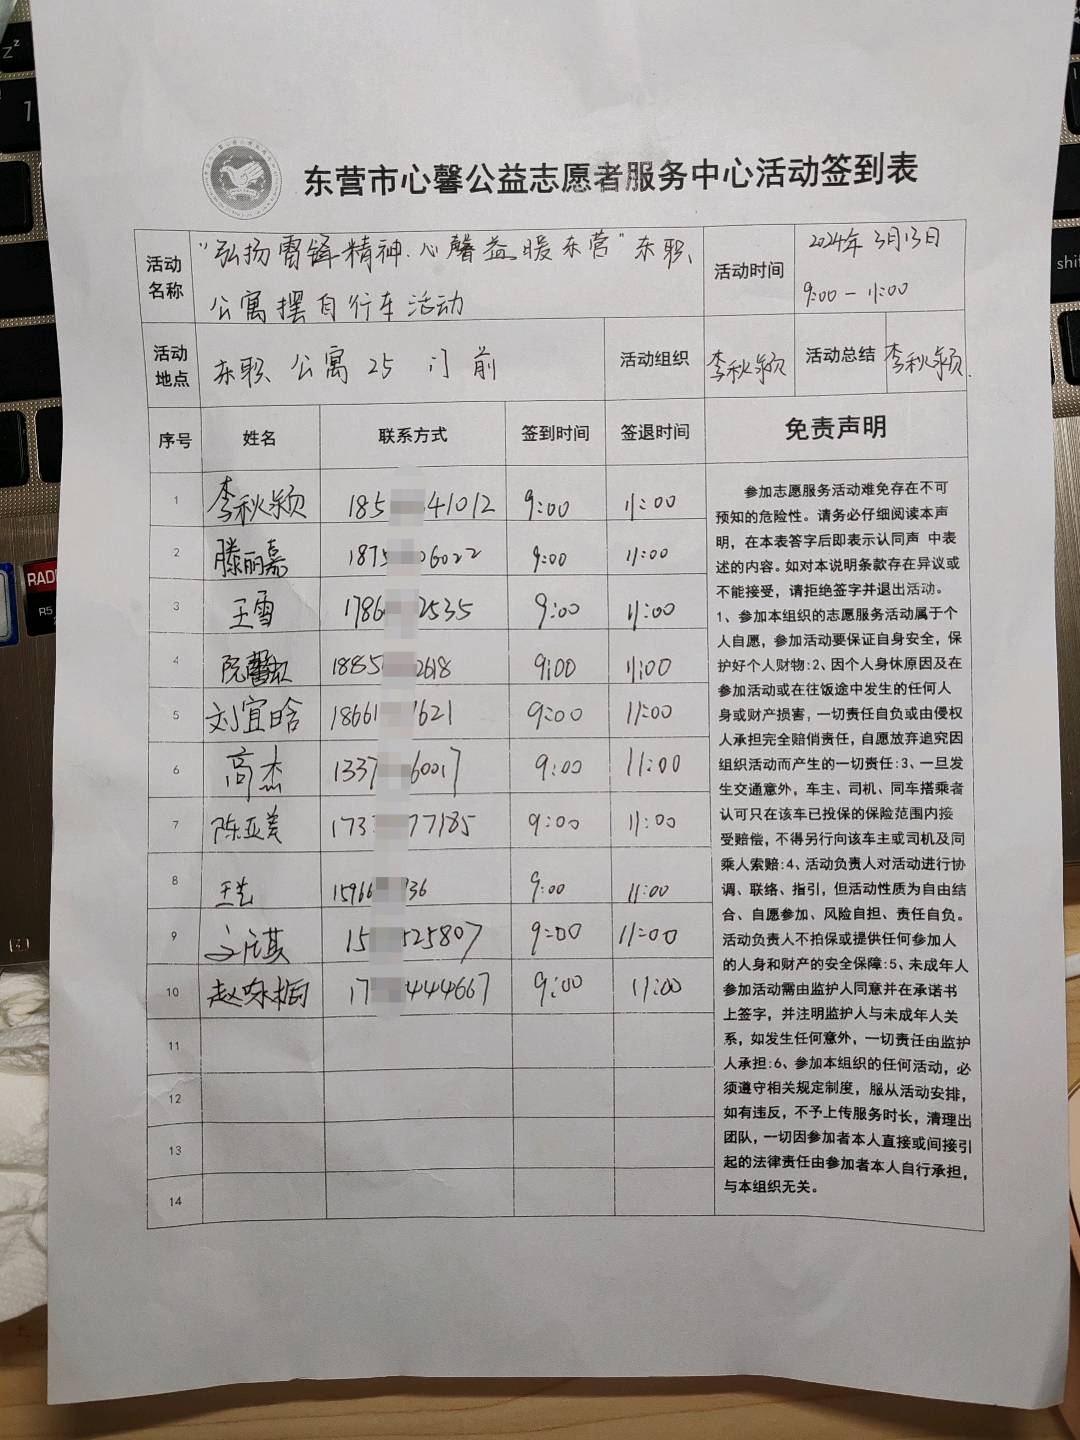 东营市心馨公益志愿者服务中心活动签到表
活动名称 "弘扬雷锋精神.心馨益暖东营"东职公寓摆自行车活动 活动时间 2024年3月13日 9:00-11:00
活动地点 东职公寓25门前 活动组织 李秋颖 活动总结 李秋颖.
序号 姓名 联系方式 签到时间 签退时间 免责声明
1 李秋颖 185 41012 9:00 11:00
2 滕丽嘉 1875 06022 9:00 11:00
3 王雪 1786 2535 9:00 11:00
4 阮馨 1885 2618 9:00 11:00
5 刘宜晗 18661 1621 9:00 11:00
6 高杰 1337 60017 9:00 11:00
7 陈亚美 173 77185 9:00 11:00
8 王 15966 936 9:00 11:00
9 15 525807 9:00 11:00
10 赵咏 17 444667 9:00 11:00
11
12
13
14
参加志愿服务活动难免存在不可
预知的危险性。请务必仔细阅读本声
明，在本表答字后即表示认同声 中表
述的内容。如对本说明条款存在异议或
不能接受，请拒绝签字并退出活动。
1、参加本组织的志愿服务活动属于个
人自愿，参加活动要保证自身安全，保
护好个人财物:2、因个人身休原因及在
参加活动或在往饭途中发生的任何人
身或财产损害，一切责任自负或由侵权
人承担完全赔俏责任，自愿放弃追究因
组织活动而产生的一切责任:3、一旦发
生交通意外，车主、司机、同车搭乘者
认可只在该车已投保的保险范围内接
受赔偿，不得另行向该车主或司机及同
乘人索赔:4、活动负责人对活动进行协
调、联络、指引，但活动性质为自由结
合、自愿参加、风险自担、责任自负。
活动负责人不拍保或提供任何参加人
的人身和财产的安全保障:5、未成年人
参加活动需由监护人同意并在承诺书
上签字，并注明监护人与未成年人关
系，如发生任何意外，一切责任由监护
人承担:6、参加本组织的任何活动，必
须遵守相关规定制度，服从活动安排，
如有违反，不予上传服务时长，清理出
团队，一切因参加者本人直接或间接引
起的法律责任由参加者本人自行承担，
与本组织无关。